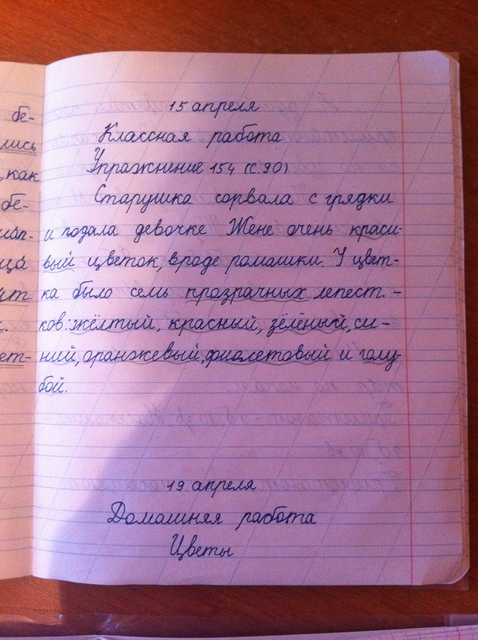 бе-
лись
как
бе-
шап-
ща
ит
ет-
15 апреля
Классная работа
Упражнение 154 (с. 90)
Старушка сорвала с грядки
и подала девочке Жене очень краси-
вый цветок, вроде ромашки. У цвет-
ка было семь прозрачных лепест-
ков: жёлтый, красный, зелёный, си-
ний, оранжевый, фиолетовый и голу-
бой.
19 апреля
Домашняя работа
Цветы